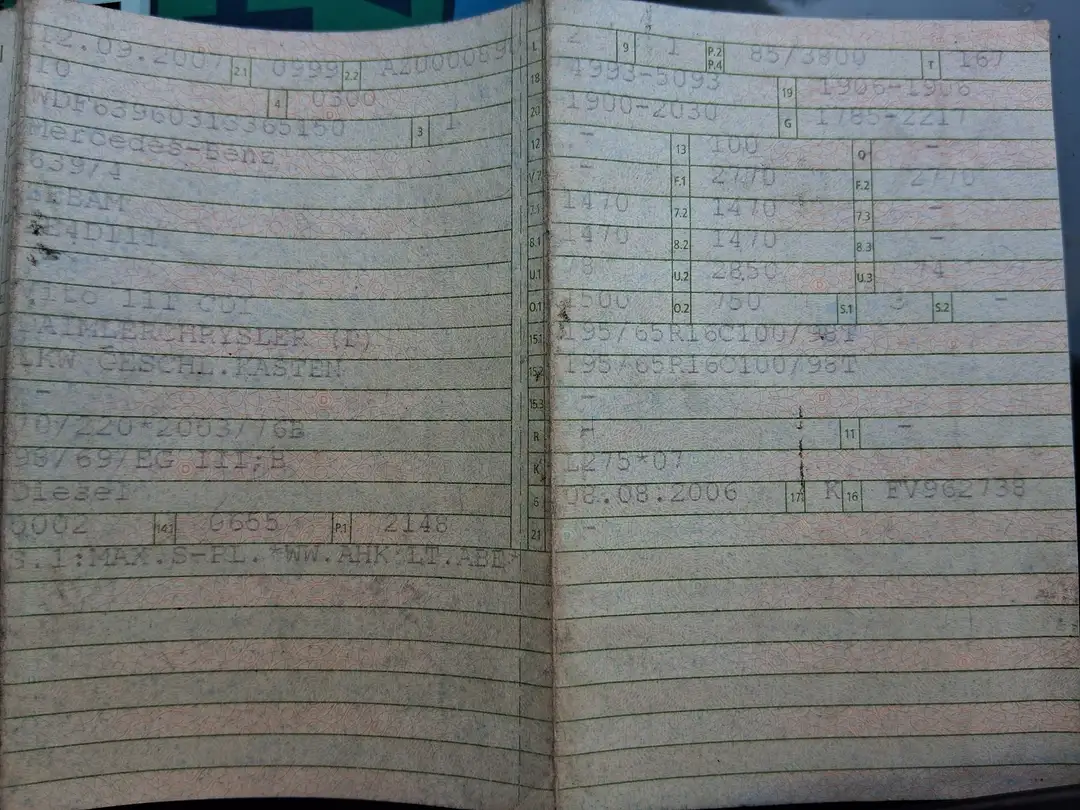 12.09.2007 2.1 0999 2.2
10 4 0300
WDF63960313365150 3 1
Mercedes-Benz
639/4
Vito 111 CDI
DAIMLERCHRYSLER (D)
LKW GESCHL.KASTEN
-
70/220*2003/76B
98/69/EG III;B
Diesel
0002 14.1 0665 P.1 2148
S.1:MAX.S-PL.*WW.AHK LT.ABE*
L 2 9 1 P.2 P.4 85/3800 T 167
18 4993-5093 19 1906-1906
20 1900-2030 G 1785-2217
12 - 13 100 Q -
V.7 - F.1 2770 F.2 2770
7.1 1470 7.2 1470 7.3 -
8.1 1470 8.2 1470 8.3 -
U.1 78 U.2 2850 U.3 74
O.1 1500 O.2 750 S.1 3 S.2 -
15.1 195/65R16C100/98T
15.2 195/65R16C100/98T
15.3 -
R - 11 -
K L275*07
6 08.08.2006 17 K 16 FV962738
21 -